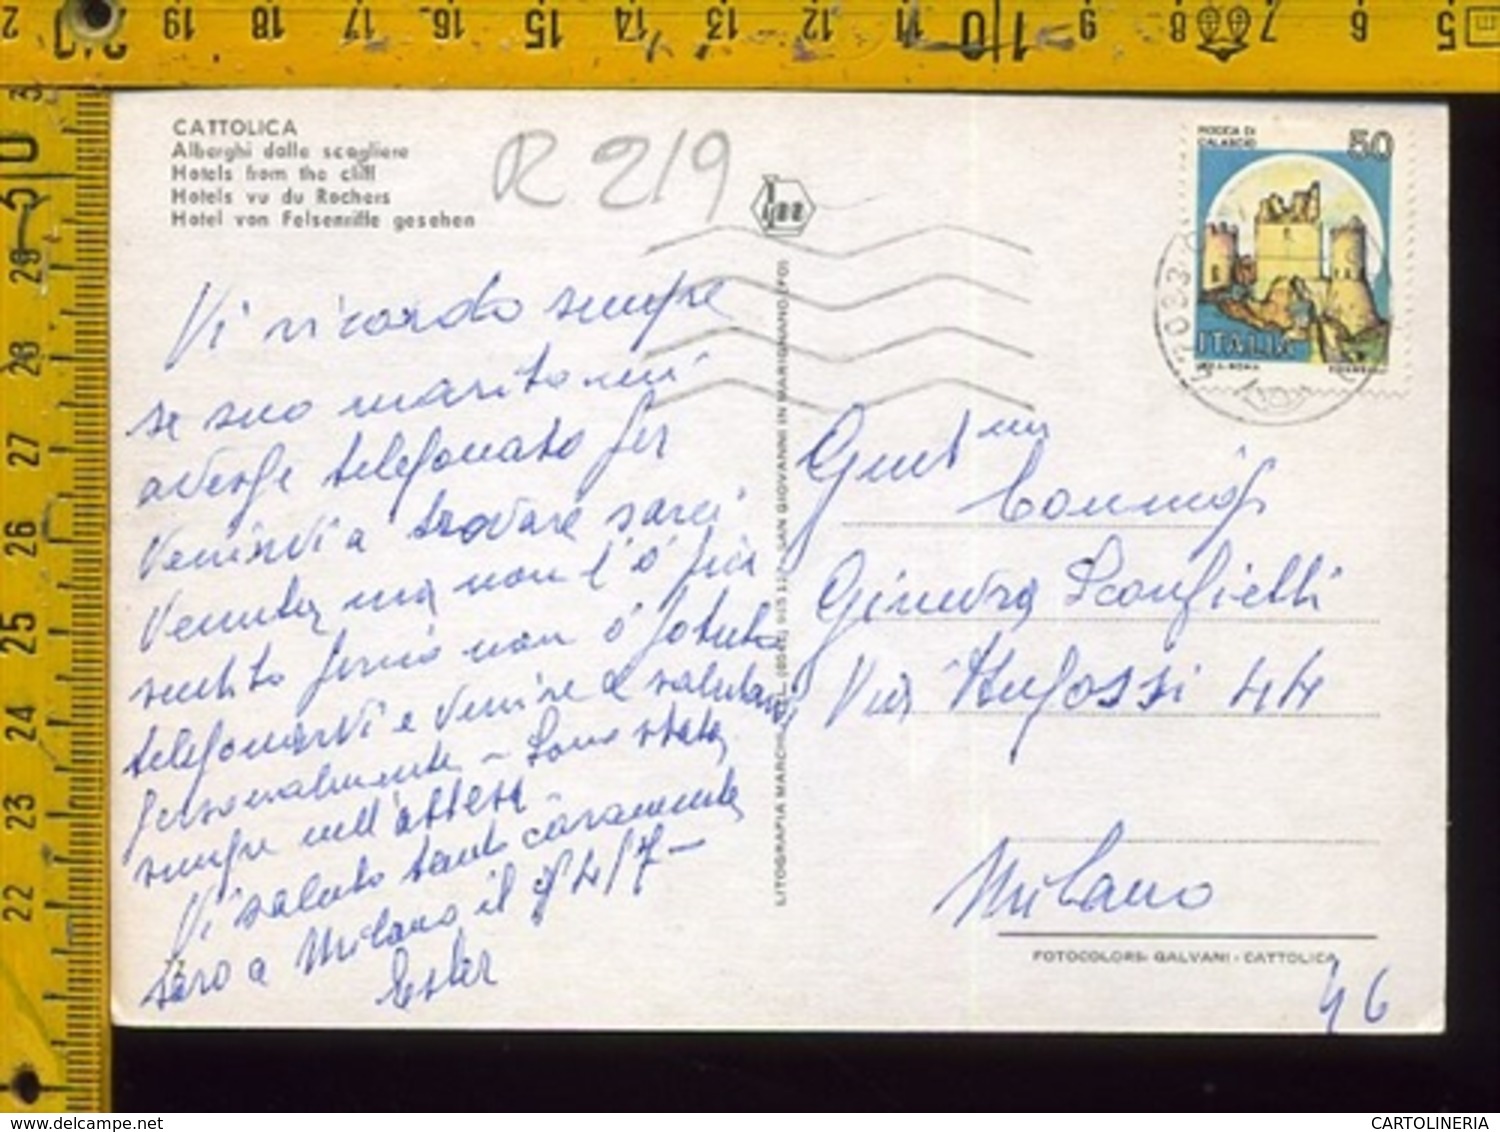 CATTOLICA
Alberghi dalle scogliere
Hotels from the cliff
Hotels vu du Rochers
Hotel von Felsenriffe gesehen
R 219
ROCCA DI
CALASCIO
50
ITALIA
Vi ricordo sempre
se suo marito mi
avesse telefonato per
venirvi a trovare sarei
venuta ma non l'ò più
sentito perciò non ò potuto
telefonarvi e venire a salutarvi
personalmente - Sono stata
sempre nell'attesa
Vi saluto tanto caramente
sarò a Milano il 24/7-
Ester
LITOGRAFIA MARCHI TEL. SAN GIOVANNI IN MARIGNANO (FO)
Gent
Ginevra Sconfietti
Via 44
Milano
FOTOCOLORS: GALVANI - CATTOLICA
46
https://www.delcampe.net
CARTOLINERIA